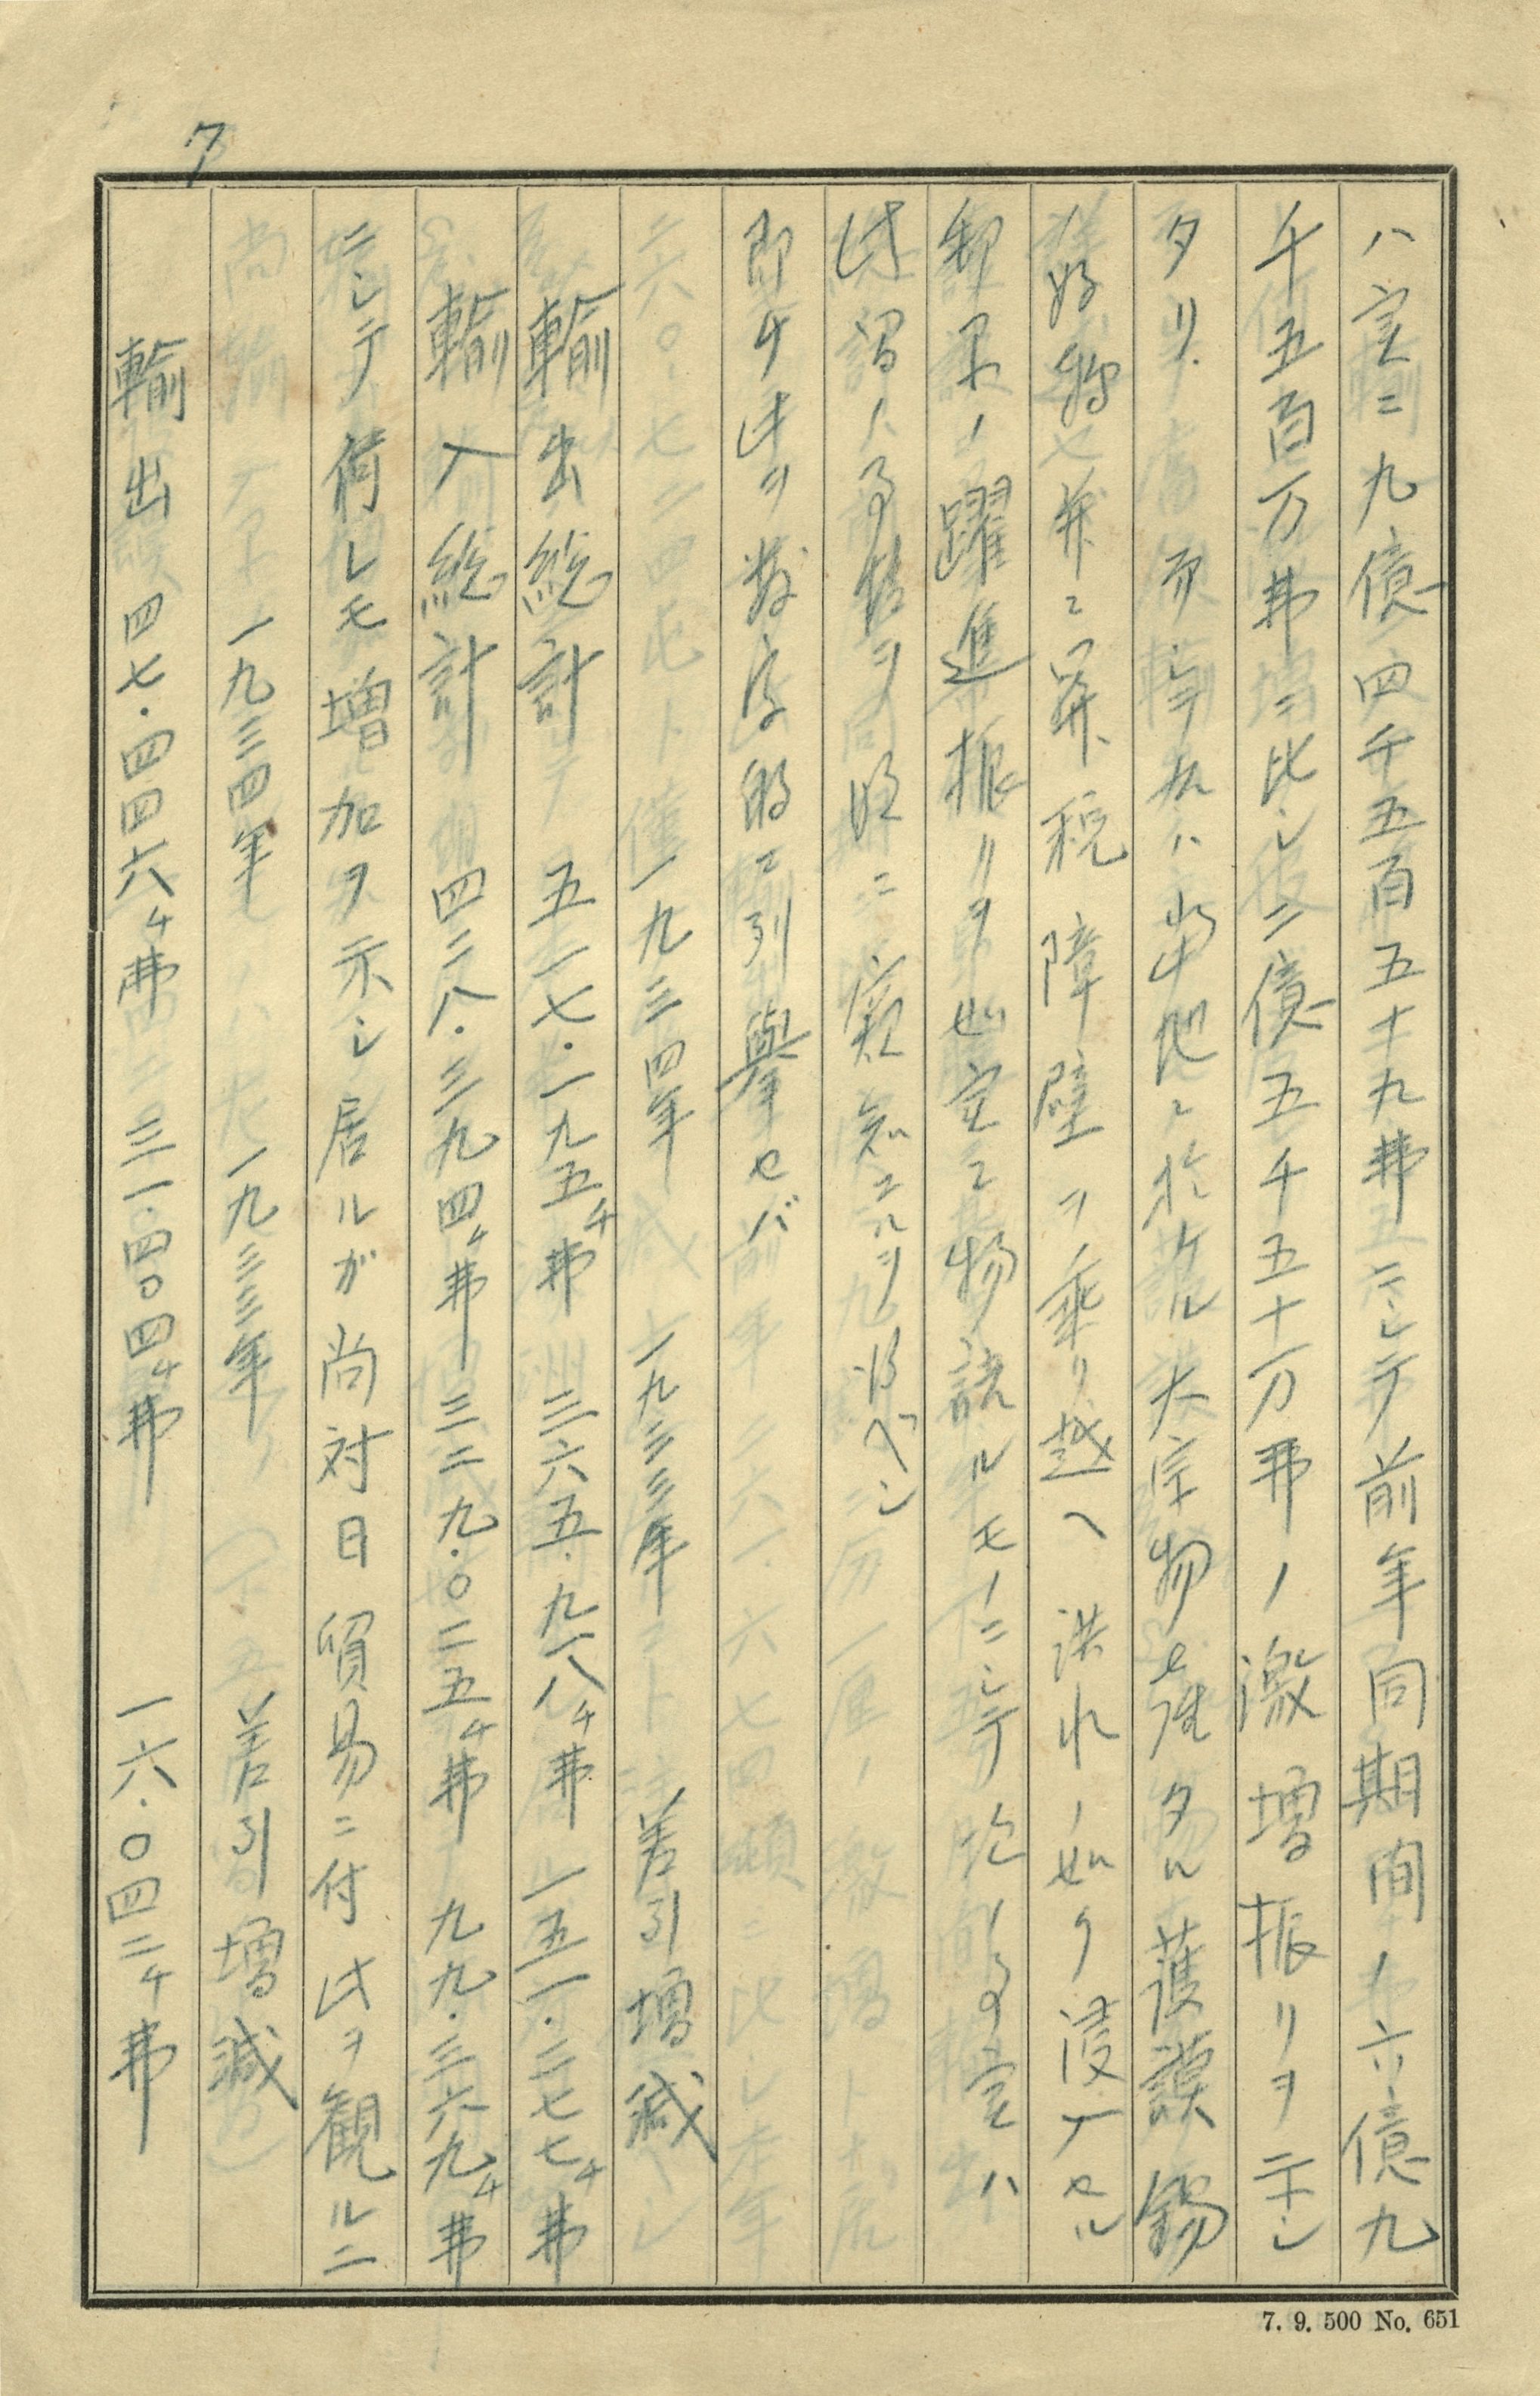 7
ハ実ニ九億四千五百五十九弗ニシテ前年同期間ノ六億九
千五百万弗ニ比シ二億五千五十万弗ノ激増振リヲ示シ
タリ、而シテ右ハ当地ニ於ケル大宗物産タル護謨錫
好轉 並ニ関税障壁ヲ乗リ越ヘ洪水ノ如ク浸入セル
邦品ノ躍進振リヲ如実ニ物語ルモノニシテ
此間ノ事情ヲ明ニ窺知スルヲ得ベシ
即チ此ヲ数字的ニ列挙セバ
一九三四年 一九三三年 差引増減
輸出総計 五一七・一九五千弗 三六五・九一八千弗 一五一・二七七千弗
輸入総計 四二八・三九四千弗 三二九・〇二五千弗 九九・三六九千弗
ニシテ何レモ増加ヲ示シ居ルガ尚対日貿易ニ付此ヲ観ルニ
一九三四年 一九三三年 差引増減
輸出 四七・四四六千弗 三一・四〇四千弗 一六・〇四二千弗
7. 9. 500 No. 651